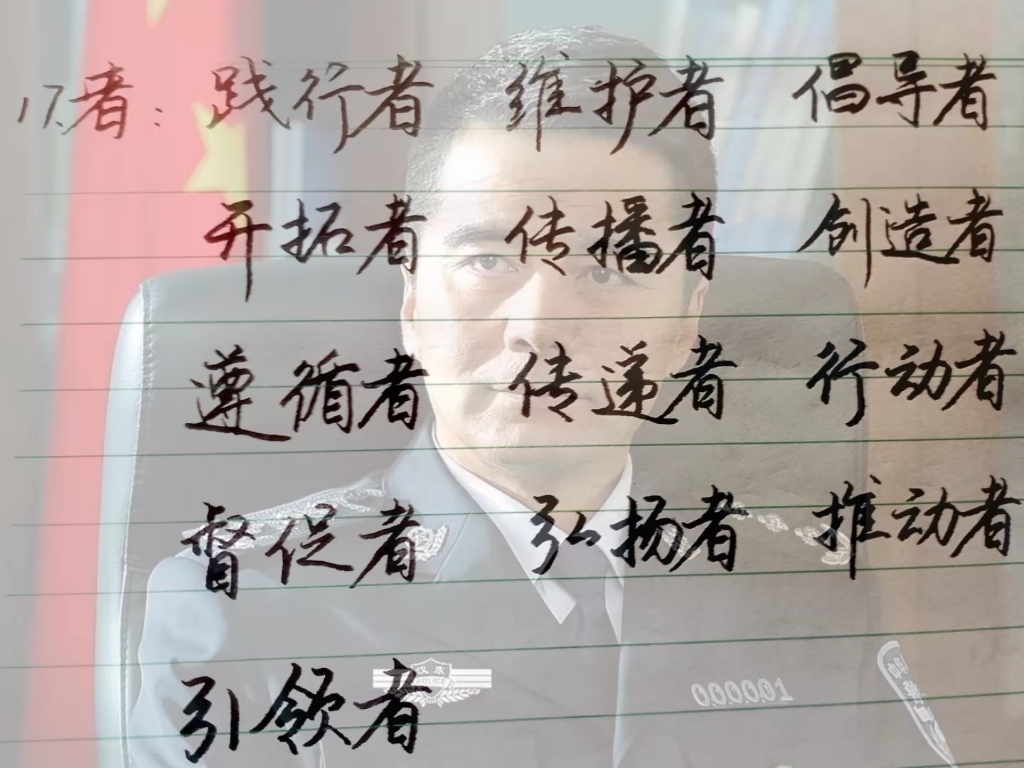 17.者: 践行者 维护者 倡导者
开拓者 传播者 创造者
遵循者 传递者 行动者
督促者 弘扬者 推动者
引领者
汉东
POLICE
000001